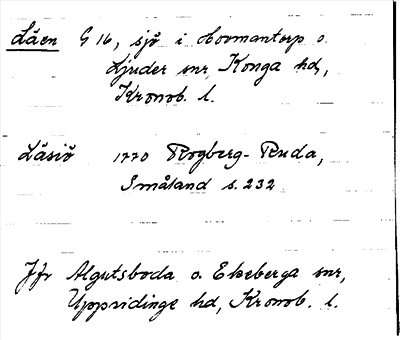 Låen G 16, sjö i Hovmantorp o.
Ljuder snr, Konga hd,
Kronob. l.
Låsiö 1770 Rogberg-Ruda,
Småland s. 232
Jfr Algutsboda o. Ekeberga snr,
Uppvidinge hd, Kronob. l.